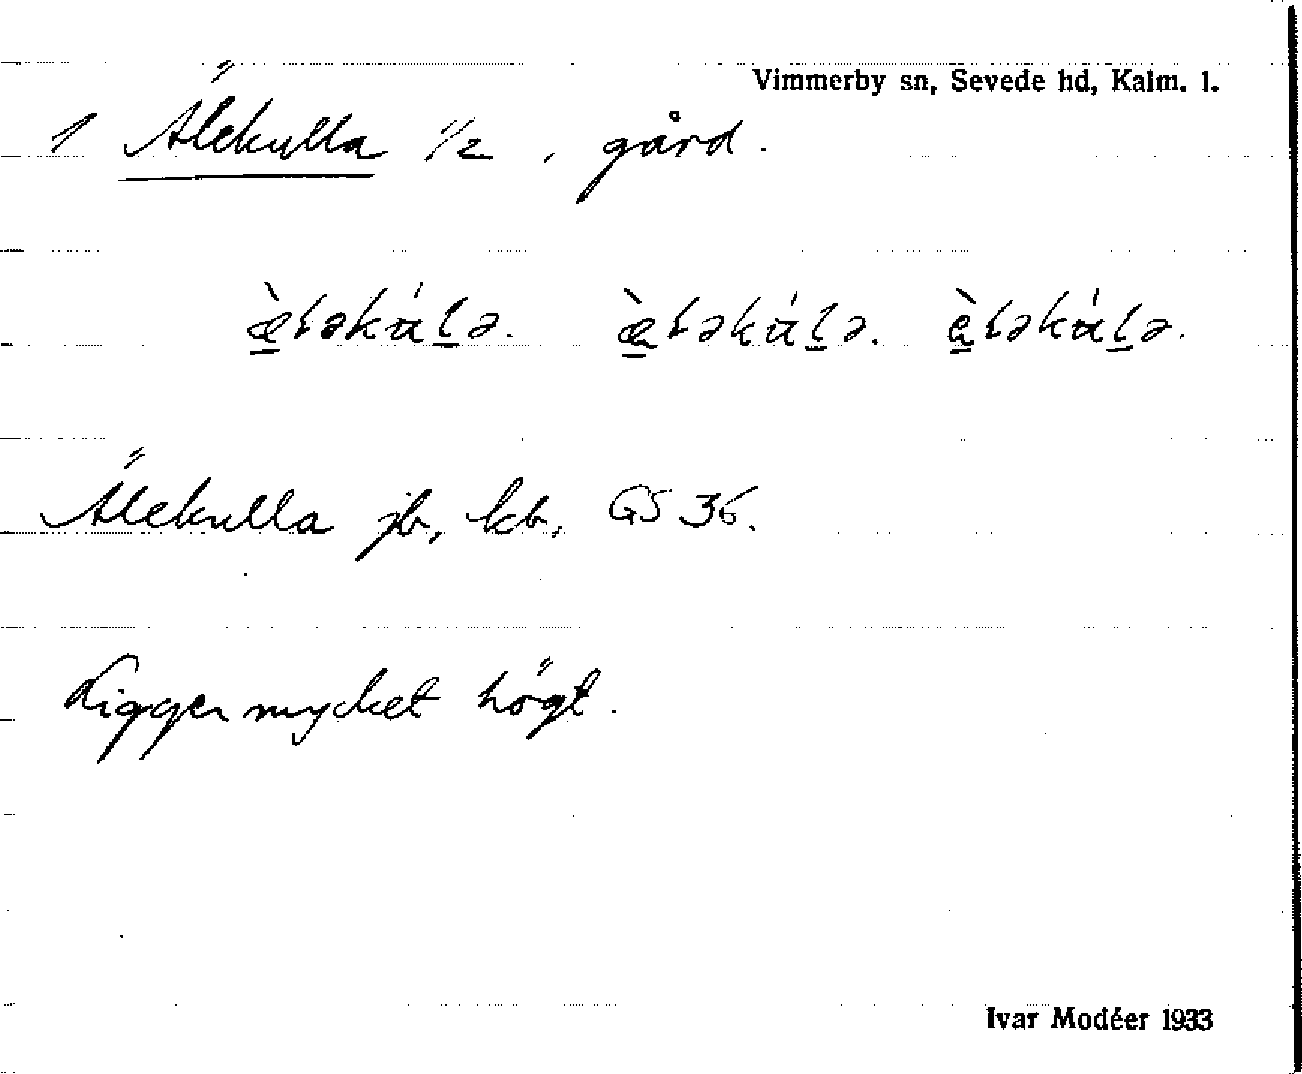 Vimmerby sn, Sevede hd, Kalm. l.
1 Älekulla 1/2, gård.
æ̲̀ləkúl̲ə. æ̲̀ləkúl̲ə. è̲ləkúl̲ə.
Älekulla jb, kb, GS 36.
Ligger mycket högt.
Ivar Modéer 1933